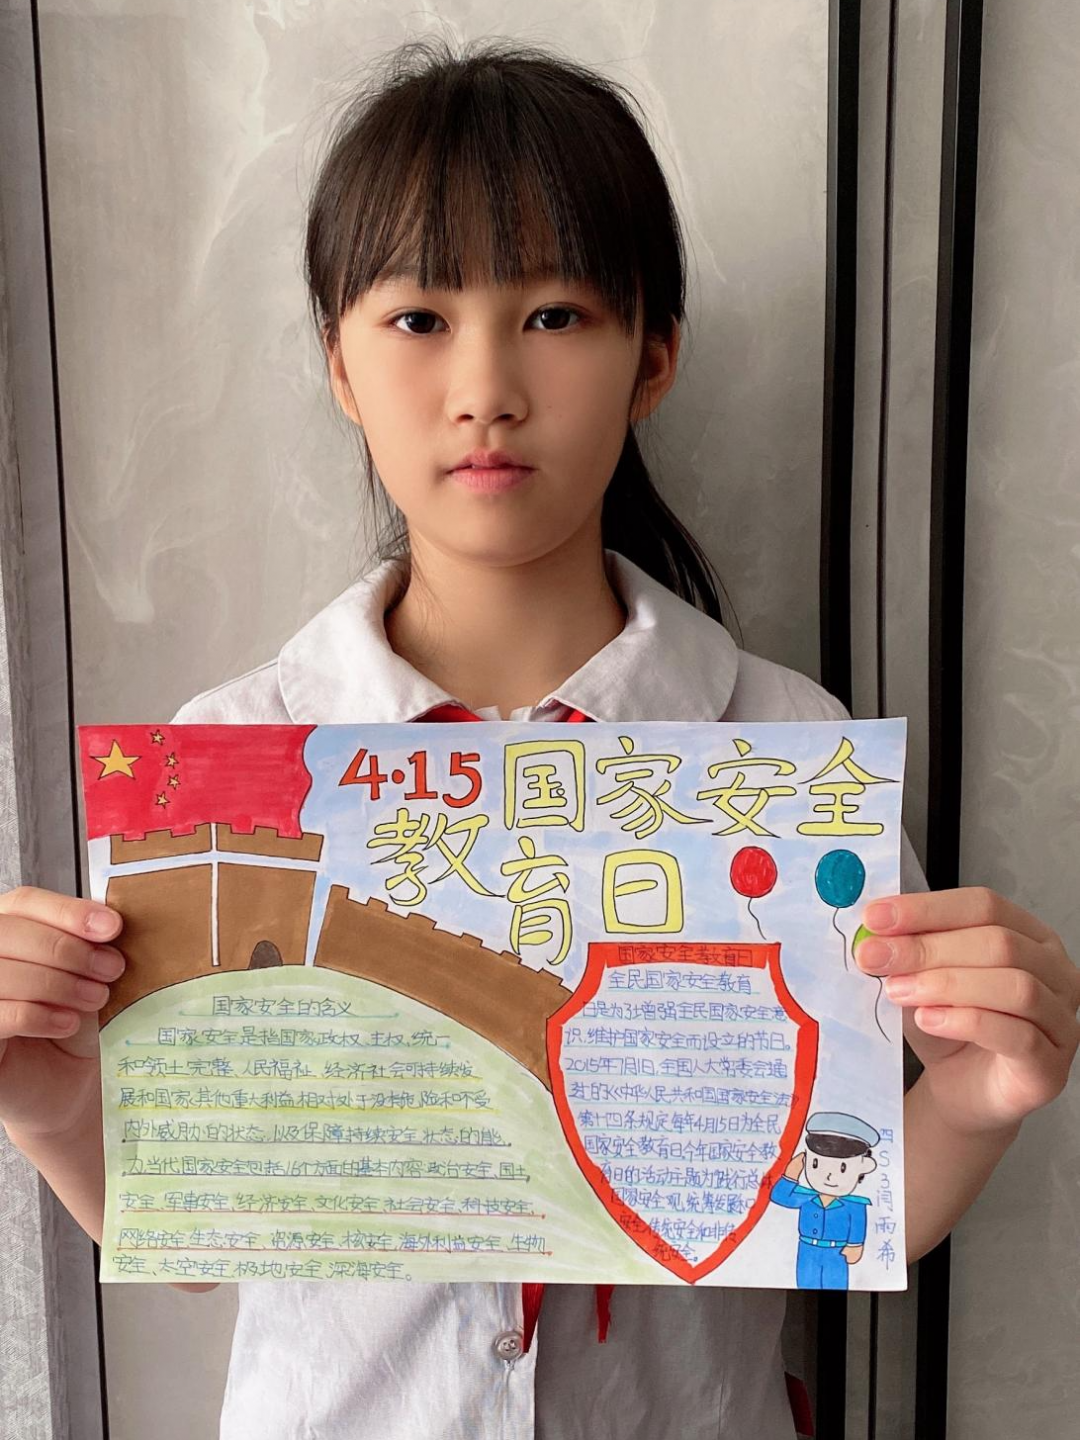 4·15 国家安全
教育日
国家安全的含义
国家安全是指国家政权、主权、统一
和领土完整、人民福祉、经济社会可持续发
展和国家其他重大利益相对处于没有危险和不受
内外威胁的状态,以及保障持续安全状态的能
力,当代国家安全包括16个方面的基本内容:政治安全、国土
安全、军事安全、经济安全、文化安全、社会安全、科技安全、
网络安全、生态安全、资源安全、核安全、海外利益安全、生物
安全、太空安全、极地安全、深海安全。
国家安全教育日
全民国家安全教育
日是为了增强全民国家安全意
识,维护国家安全而设立的节日。
2015年7月1日,全国人大常委会通
过的《中华人民共和国国家安全法》
第十四条规定每年4月15日为全民
国家安全教育日今年国家安全教
育日的活动主题为践行总体
国家安全观,统筹发展和
安全,传统安全和非传
统安全。
四 5 3 闫雨希